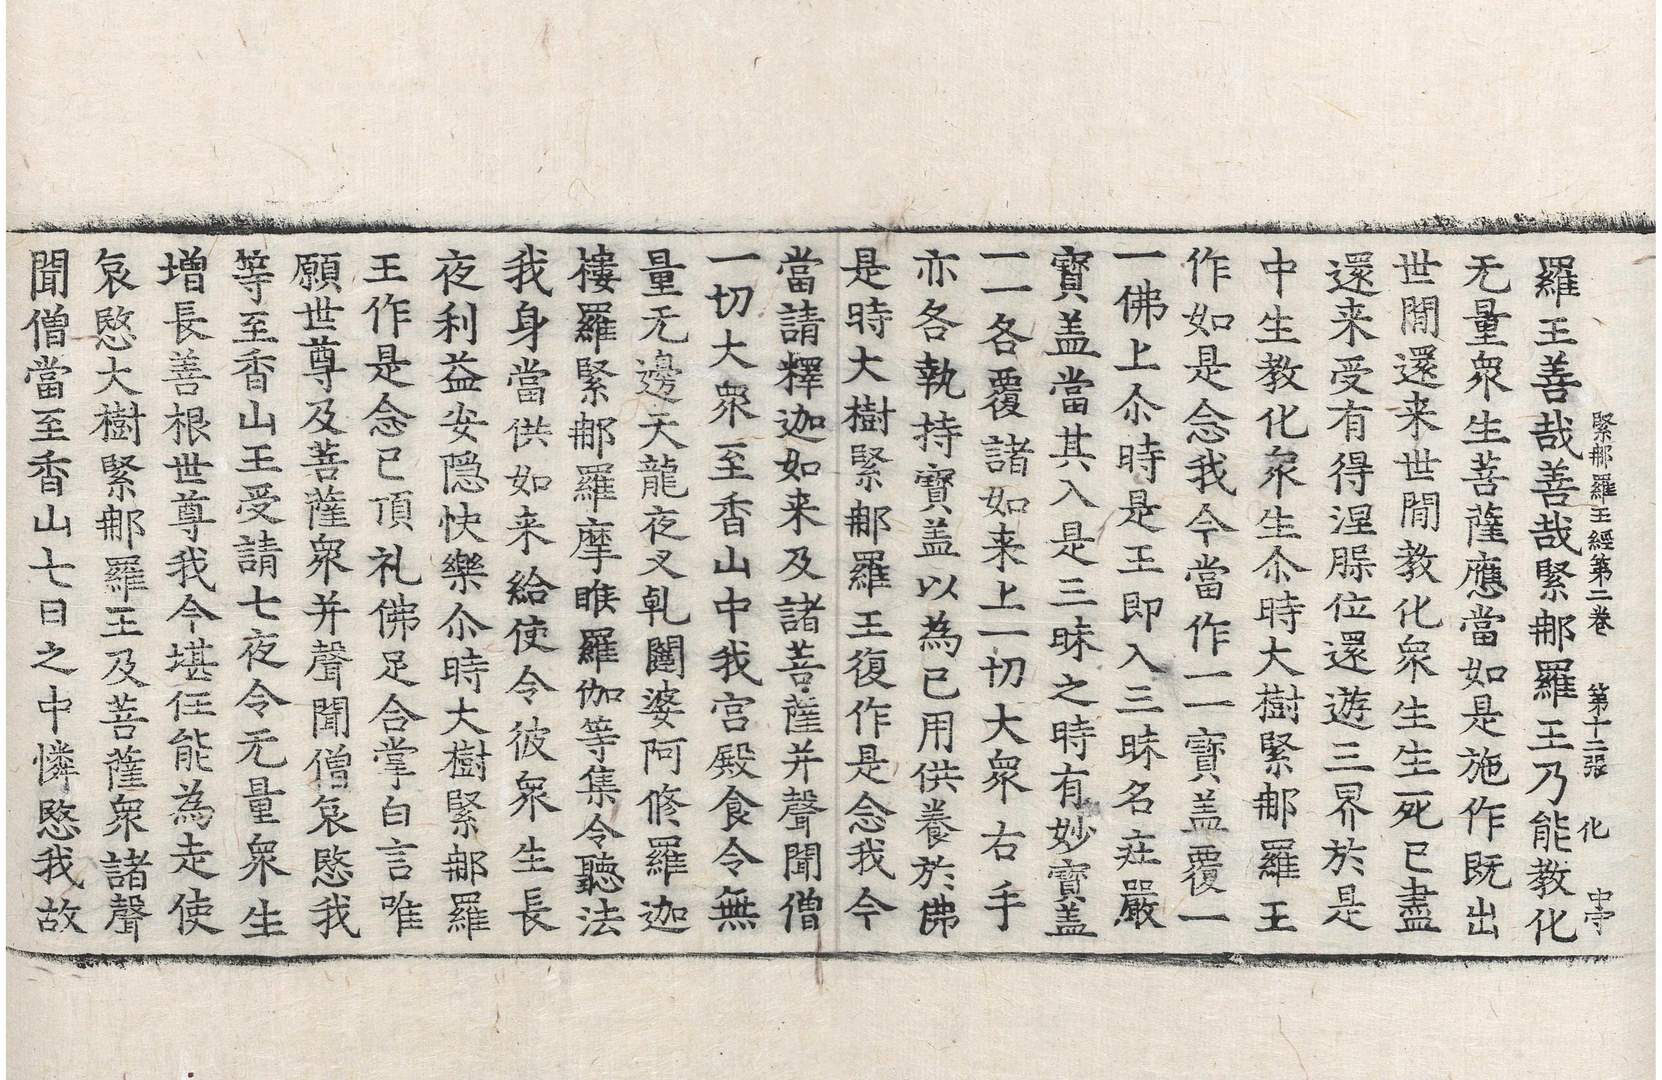 緊那羅王經第二卷 第十二張 化 中寺
羅王善哉善哉緊那羅王乃能教化
无量衆生菩薩應當如是施作既出
世間還来世間教化衆生生死已盡
還来受有得涅脲位還遊三界於是
中生教化衆生尒時大樹緊那羅王
作如是念我今當作一一寶盖覆一
一佛上尒時是王即入三昧名㽵嚴
寶盖當其入是三昧之時有妙寶盖
一一各覆諸如来上一切大衆右手
亦各執持寶盖以為已用供養於佛
是時大樹緊那羅王復作是念我今
當請釋迦如来及諸菩薩并聲聞僧
一切大衆至香山中我宮殿食令無
量无邊天龍夜叉乹闥婆阿修羅迦
樓羅緊那羅摩睺羅伽等集令聽法
我身當供如来給使令彼衆生長
夜利益安隱快樂尒時大樹緊那羅
王作是念已頂礼佛足合掌白言唯
願世尊及菩薩衆并聲聞僧哀愍我
等至香山王受請七夜令无量衆生
增長善根世尊我今堪任能為走使
哀愍大樹緊那羅王及菩薩衆諸聲
聞僧當至香山七日之中憐愍我故